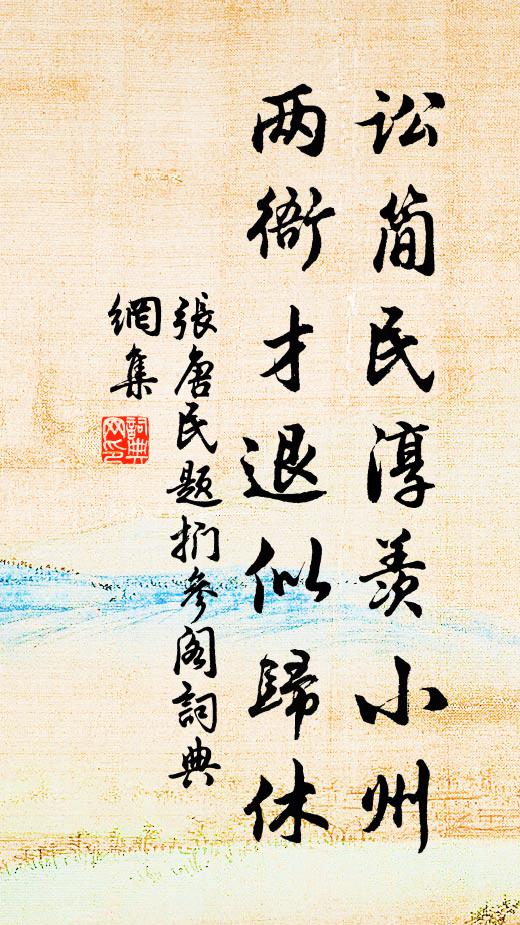 讼简民淳羡小州
两衙才退似歸休
張唐民题扪参阁詞典
網集
詞典
网印